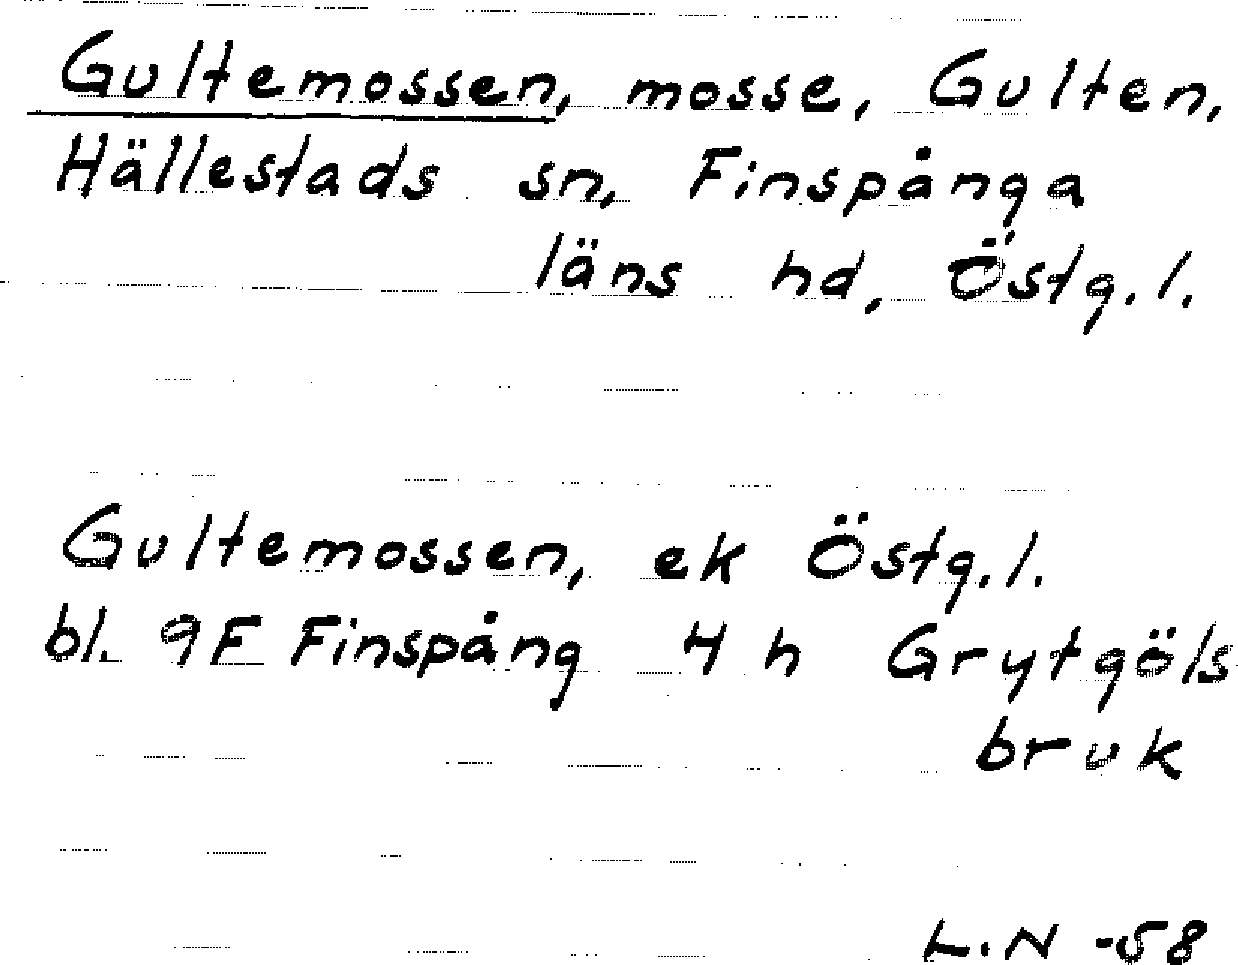 Gultemossen, mosse, Gulten,
Hällestads sn, Finspånga
läns hd, Östg.l.
Gultemossen, ek Östg.l.
bl. 9F Finspång 4 h Grytgöls
bruk
L.N -58